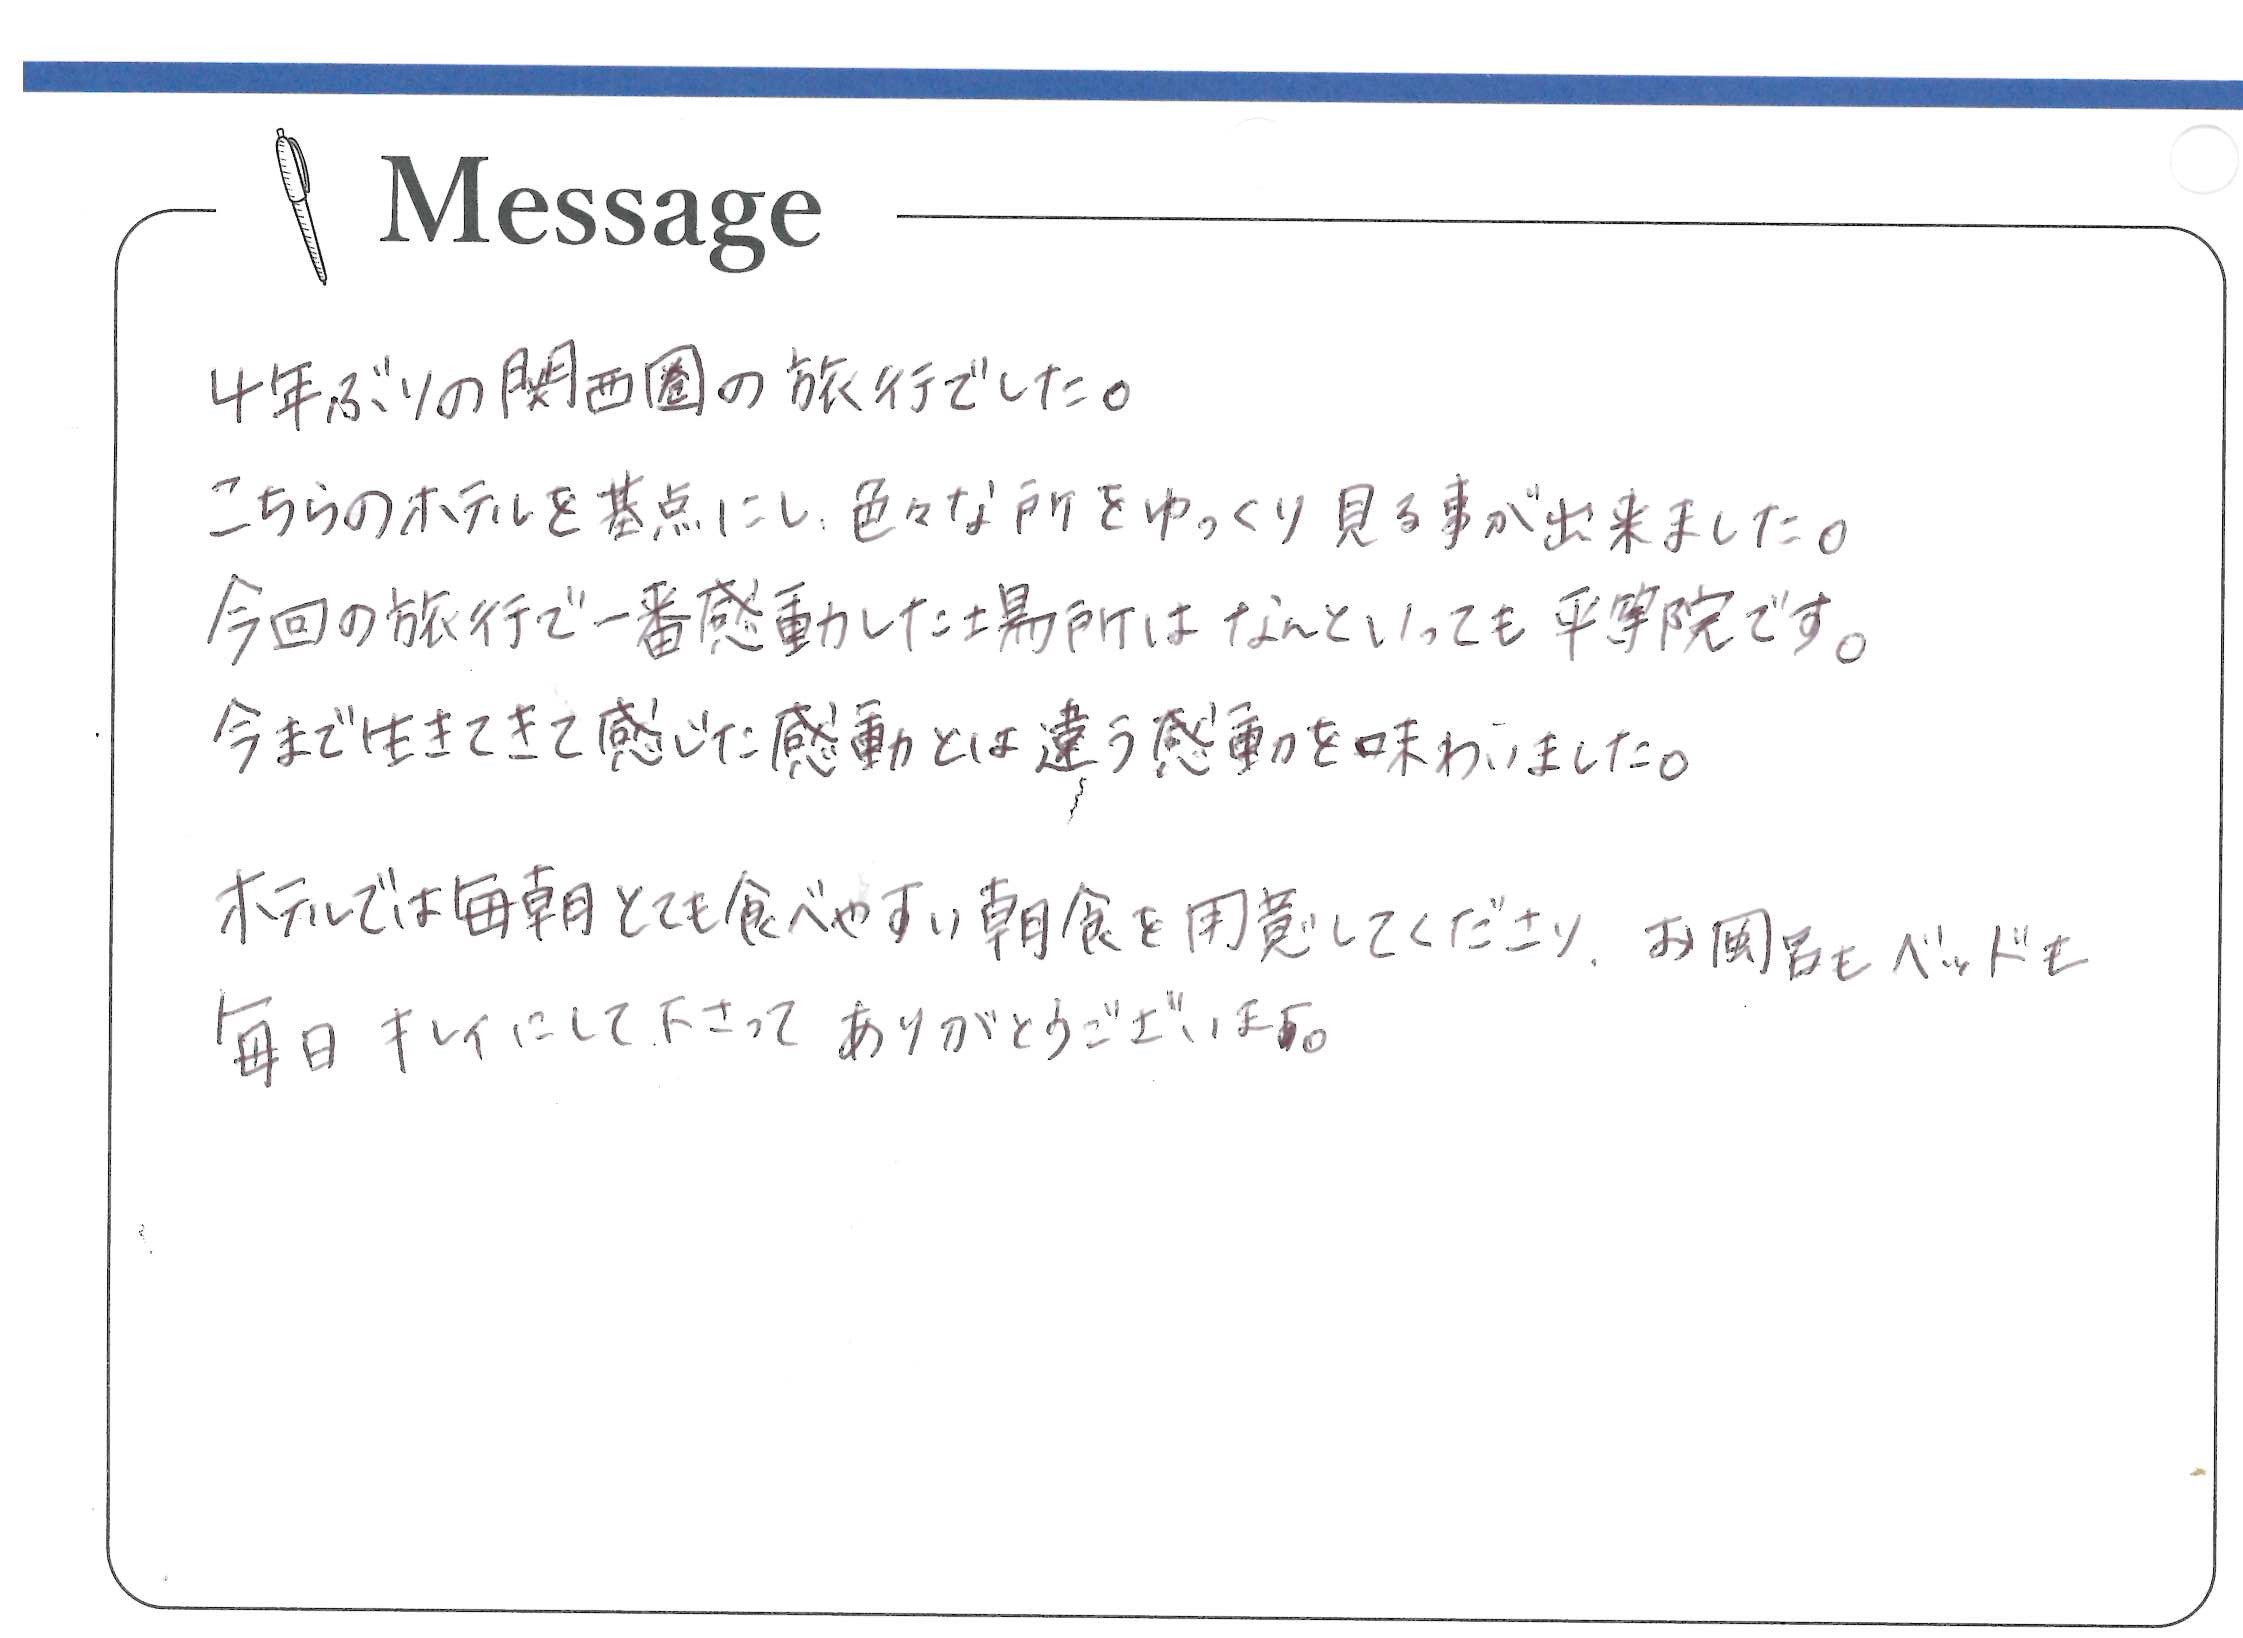 Message
4年ぶりの関西圏の旅行でした。
こちらのホテルを基点にし、色々な所をゆっくり見る事が出来ました。
今回の旅行で一番感動した場所はなんといっても平等院です。
今まで生きてきて感じた感動とは違う感動を味わいました。
ホテルでは毎朝とても食べやすい朝食を用意してくださり、お風呂もベッドも
毎日キレイにして下さってありがとうございます。